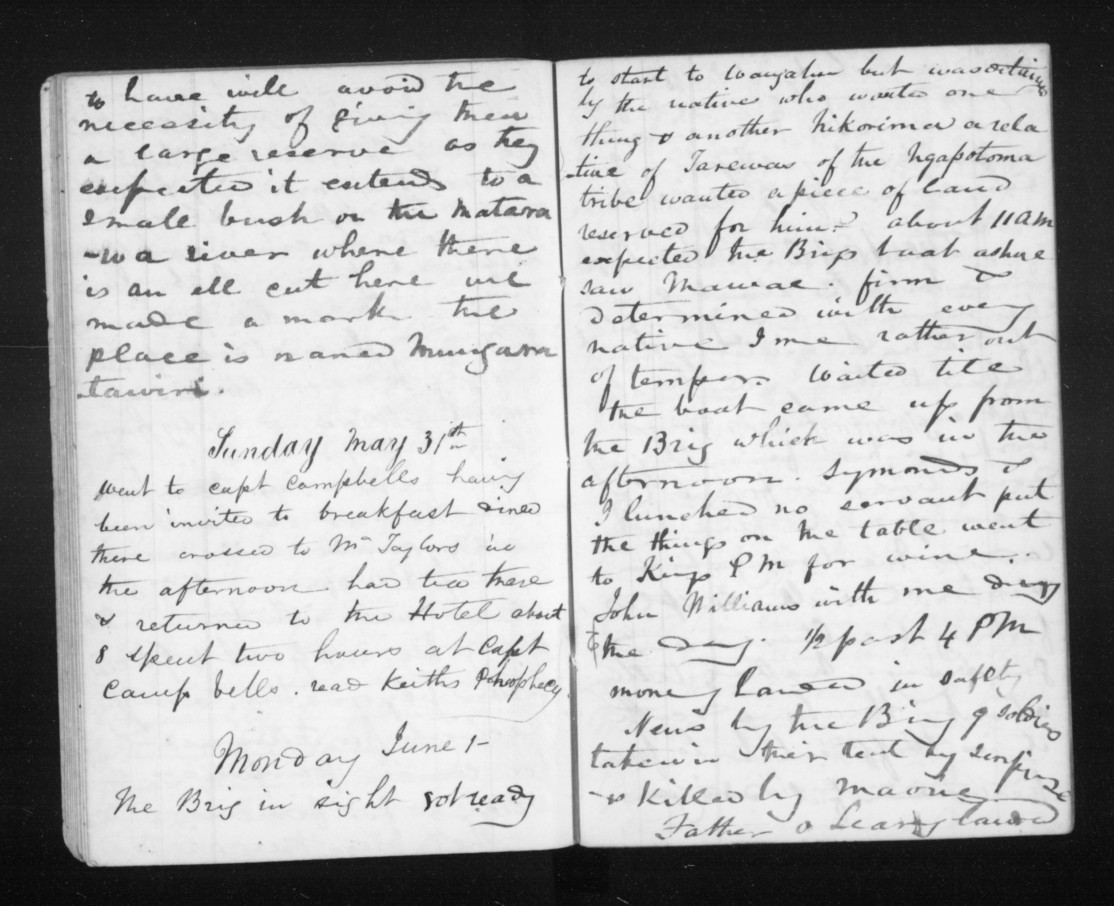 to have will avoid the
necessity of giving them
a large reserve as they
expected it extends to a
small bush on the Matara
-wa river where there
is an ell cut here we
made a mark the
place is named Mungara
tawiri.
Sunday May 31st
went to capt Campbells having
been invited to breakfast dined
there crossed to Mr Taylors in
the afternoon had tea there
& returned to the Hotel about
8 spent two hours at Capt
Camp bells. read Keiths Prophecy
Monday June 1
The Brig in sight got ready
to start to but was detained
by the native who wanted one
thing & another hikorima a rela
tive of Tarewas of the Ngapotoma
tribe wanted a piece of land
reserved for him. about 11 am
expected the Brigs boat ashore
saw Mawae. firm &
determined with every
native I me rather out
of temper. waited till
the boat came up from
the Brig which was in the
afternoon. Symonds &
I lunched no servant put
the things on the table went
to Kings P M for wine.
John Williams with me
the day. 1/2 past 4 PM
money landed in safety
News by the Brig 9 soldiers
taken in their tent by surprize
-& killed by maories
Father o Leary landed